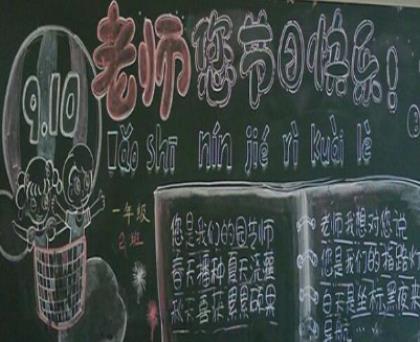 9.10
老师您节日快乐!
lǎo shī nín jié rì kuài lè
一年级
2班
您是我们的园艺师
春天播种夏天浇灌
秋天喜获累累硕果
老师我想对您说
您是我们的指路灯
白天是坐标黑夜来